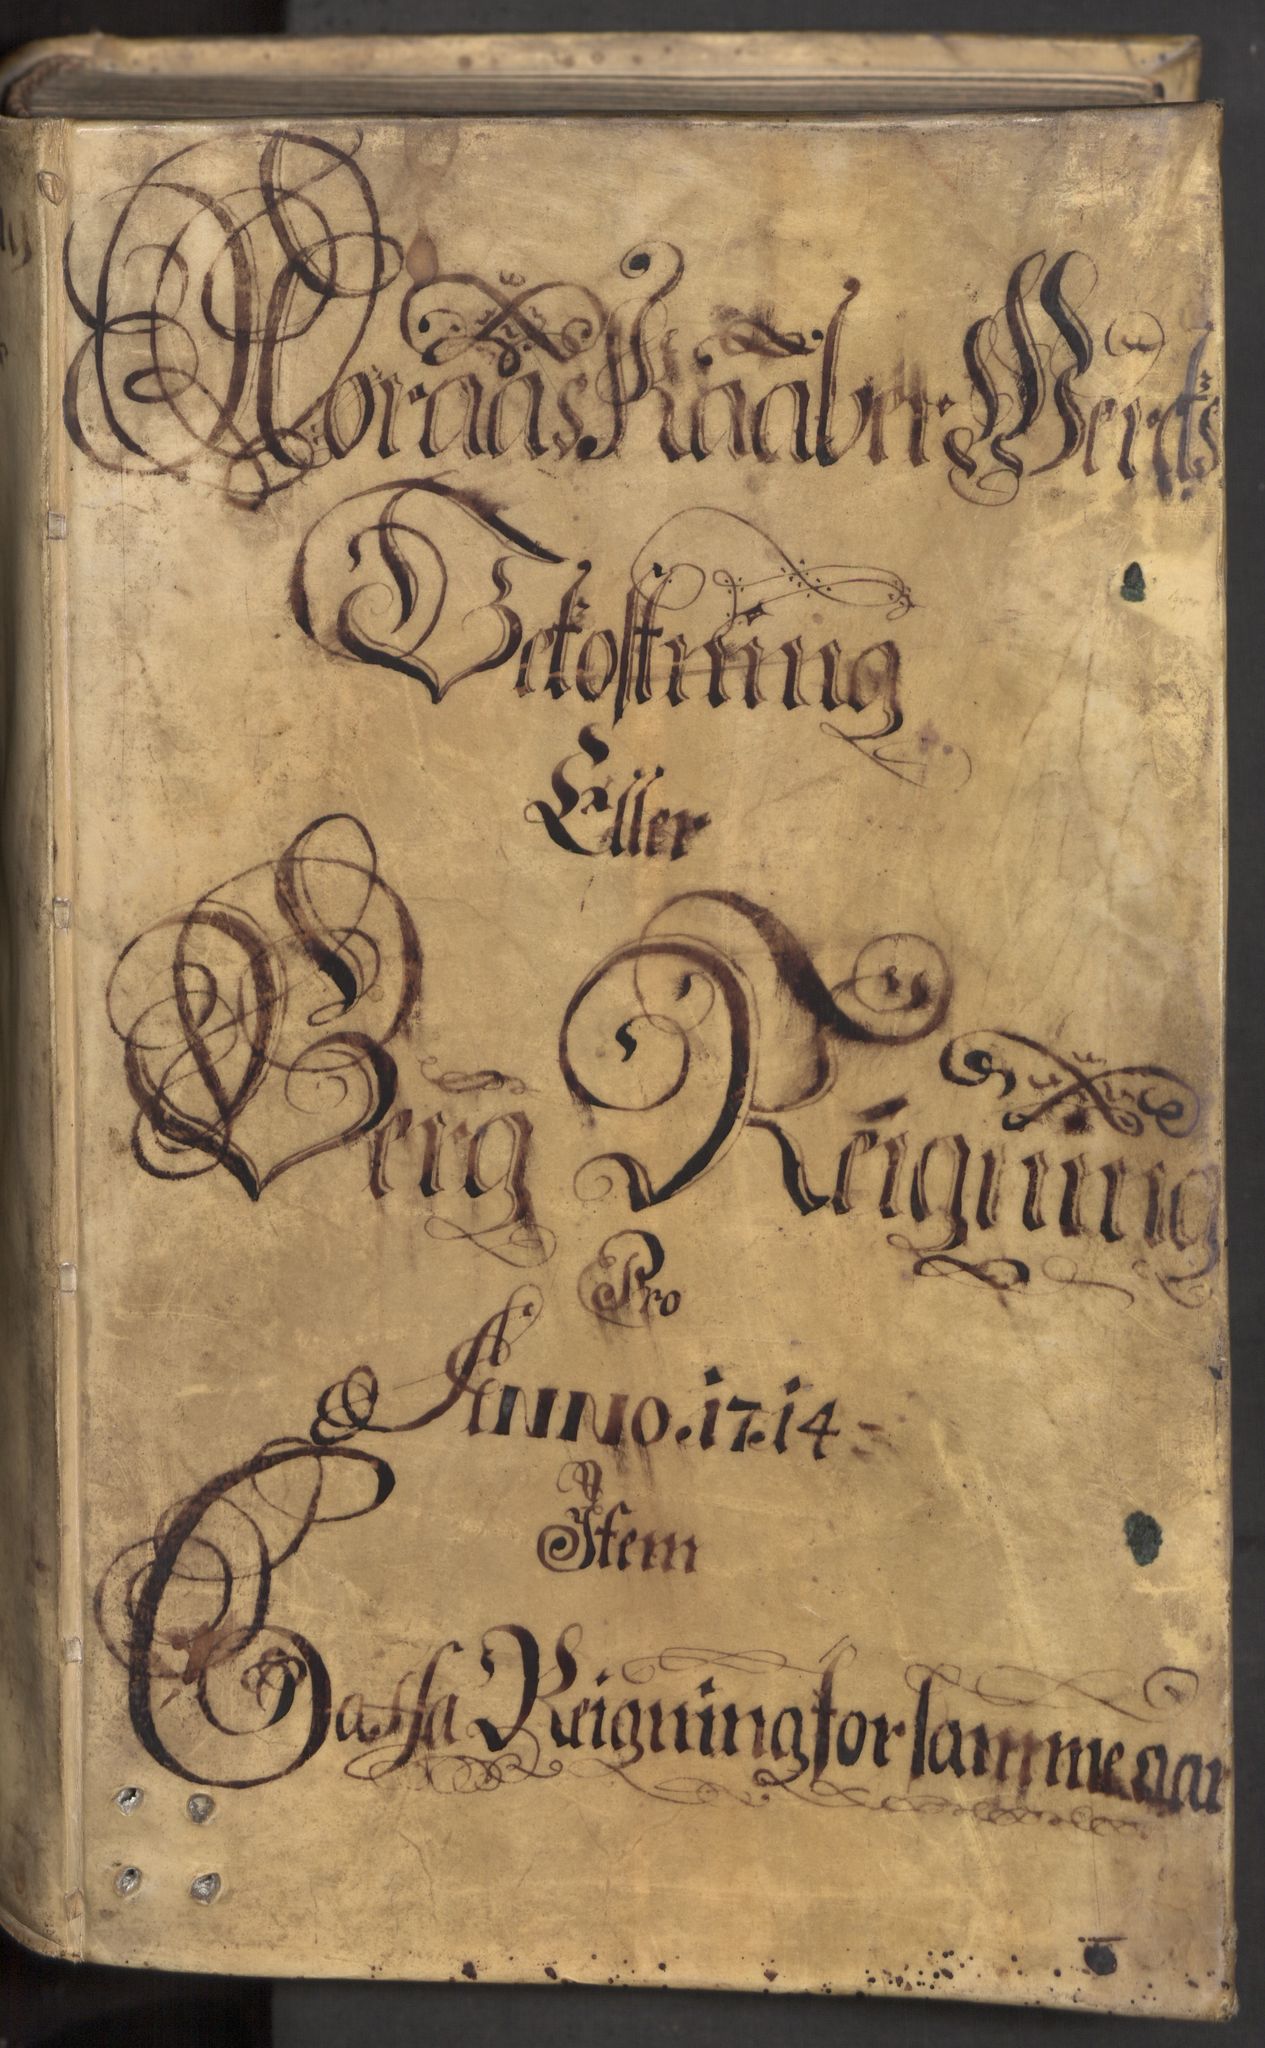 Röraas Kaaber Wercks
Bekostning
Eller
Berg Reigning
Pro
ANNO. 17.14
Item
Cassa Reigning for samme aar